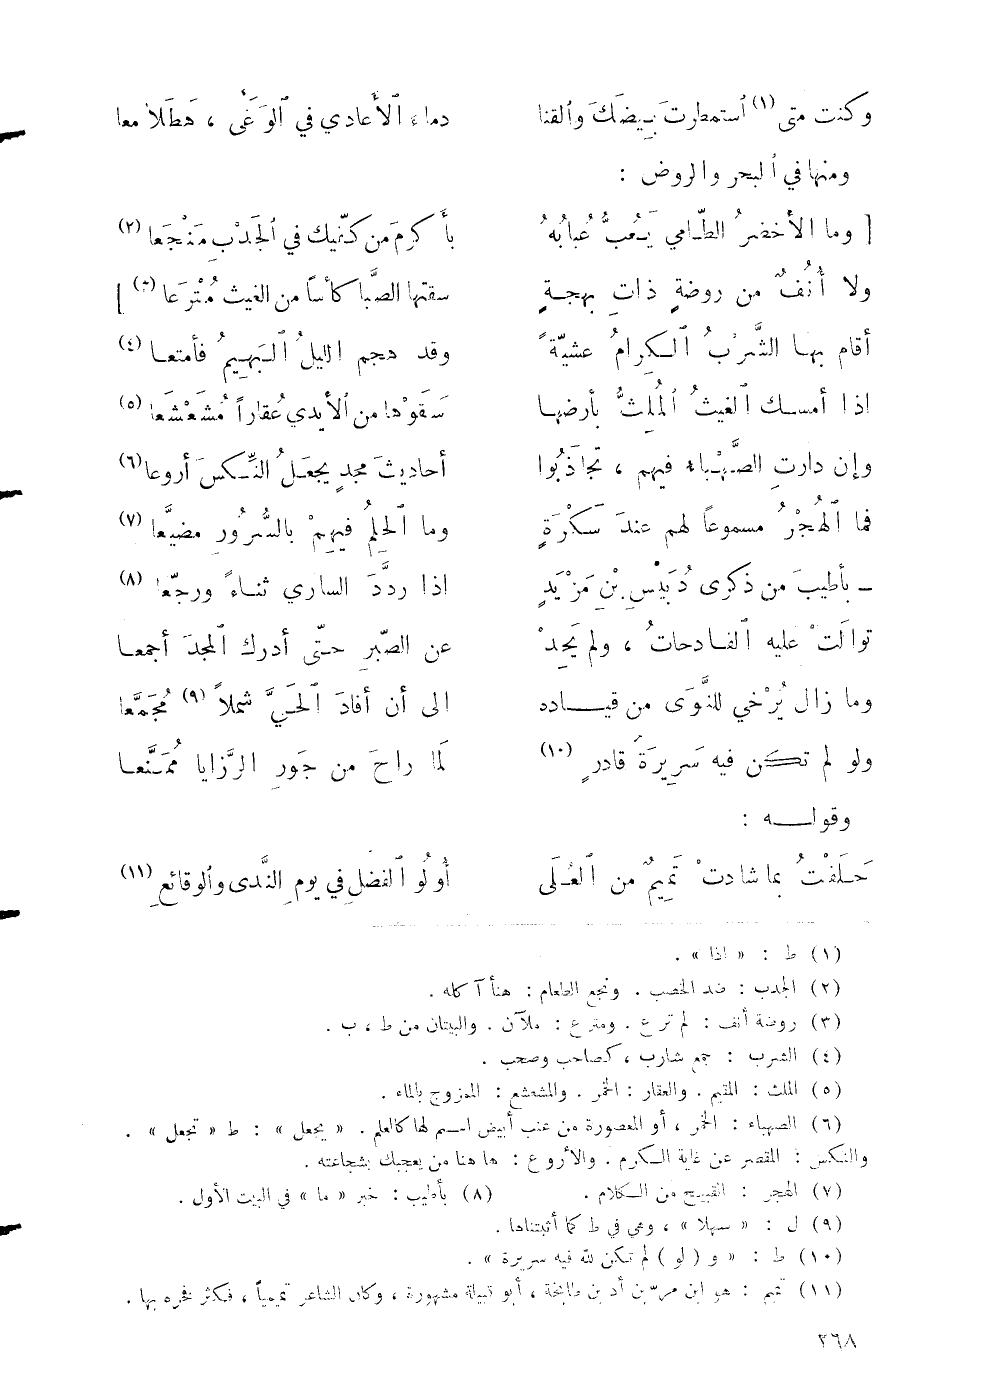 وكنت متى (١) أستمطرتَ بِيضَكَ وٱلقنا دماءَ ٱلأَعادي في ٱلوَغَى ، هَطَلا معا
ومنها في ٱلبحر والروض :
[ وما الأخضرُ الطّامي يَعُبُّ عُبابُهُ بأَكرمَ من كفّيك في ٱلجَدْبِ مَنْجَعا (٢)
ولا أُنُفٌ من روضةٍ ذاتِ بهجةٍ سقتها الصَّبا كأساً من الغيث مُتْرَعا (٣) ]
أقام بها الشَّرْبُ ٱلكرامُ عشيّةً وقد هجم الليلُ ٱلبَهيمُ فأمتعا (٤)
اذا أمسك ٱلغيثُ ٱلمُلِثُّ بأرضها سَقَوْها من ٱلأيدي عُقاراً مُشَعْشَعا (٥)
وإن دارتِ الصَّهْباء فيهم ، تجاذَبُوا أحاديثَ مجدٍ يجعَلُ النِّكسَ أروعا (٦)
فما ٱلهُجْرُ مسموعاً لهم عندَ سَكْرَةٍ وما ٱلحِلمُ فيهِمْ بالسُّرُورِ مضيَّعا (٧)
ـ بأطيبَ من ذكرى دُبَيْسِ بْنِ مَزْيَدٍ اذا ردَّدَ الساري ثناءً ورجّعا (٨)
توالَتْ عليه ٱلفادحاتُ ، ولم يَحِدْ عن الصّبرِ حتّى أدرك ٱلمجدَ أجمعا
وما زال يُرْخي للنَّوَى من قياده الى أن أفادَ ٱلحَيَّ شملاً (٩) مُجَمَّعا
ولو لم تكن فيه سَرِيرَةُ قادرٍ (١٠) لما راحَ من جَورِ الرَّزايا مُمَنَّعا
وقوله :
حَلَفْتُ بما شادتْ تَميمٌ من ٱلعُلَى أُولُو ٱلفضلِ في يومِ النَّدى وٱلوقائعِ (١١)
(١) ط : « اذا » .
(٢) الجدب : ضد الخصب . ونجع الطعام : هنأ آكله .
(٣) روضة أنف : لم ترع . ومترع : ملآن . والبيتان من ط ، ب .
(٤) الشرب : جمع شارب ، كصاحب وصحب .
(٥) الملث : المقيم . والعقار : الخمر . والمشعشع : الممزوج بالماء .
(٦) الصهباء : الخمر ، أو المعصورة من عنب أبيض اسم لها كالعلم . « يجعل » : ط « تجعل » .
والنكس : المقصر عن غاية الكرم . والأروع : ها هنا من يعجبك بشجاعته .
(٧) الهجر : القبيح من الكلام . (٨) بأطيب : خبر « ما » في البيت الأول .
(٩) ل : « سهلا » ، وهي في ط كما أثبتناها .
(١٠) ط : « و ( لو ) لم تكن لله فيه سريرة » .
(١١) تميم : هو ابن مرّ بن أد بن طابخة ، أبو قبيلة مشهورة ، وكان الشاعر تميمياً ، فكثر فخره بها .
٢٦٨